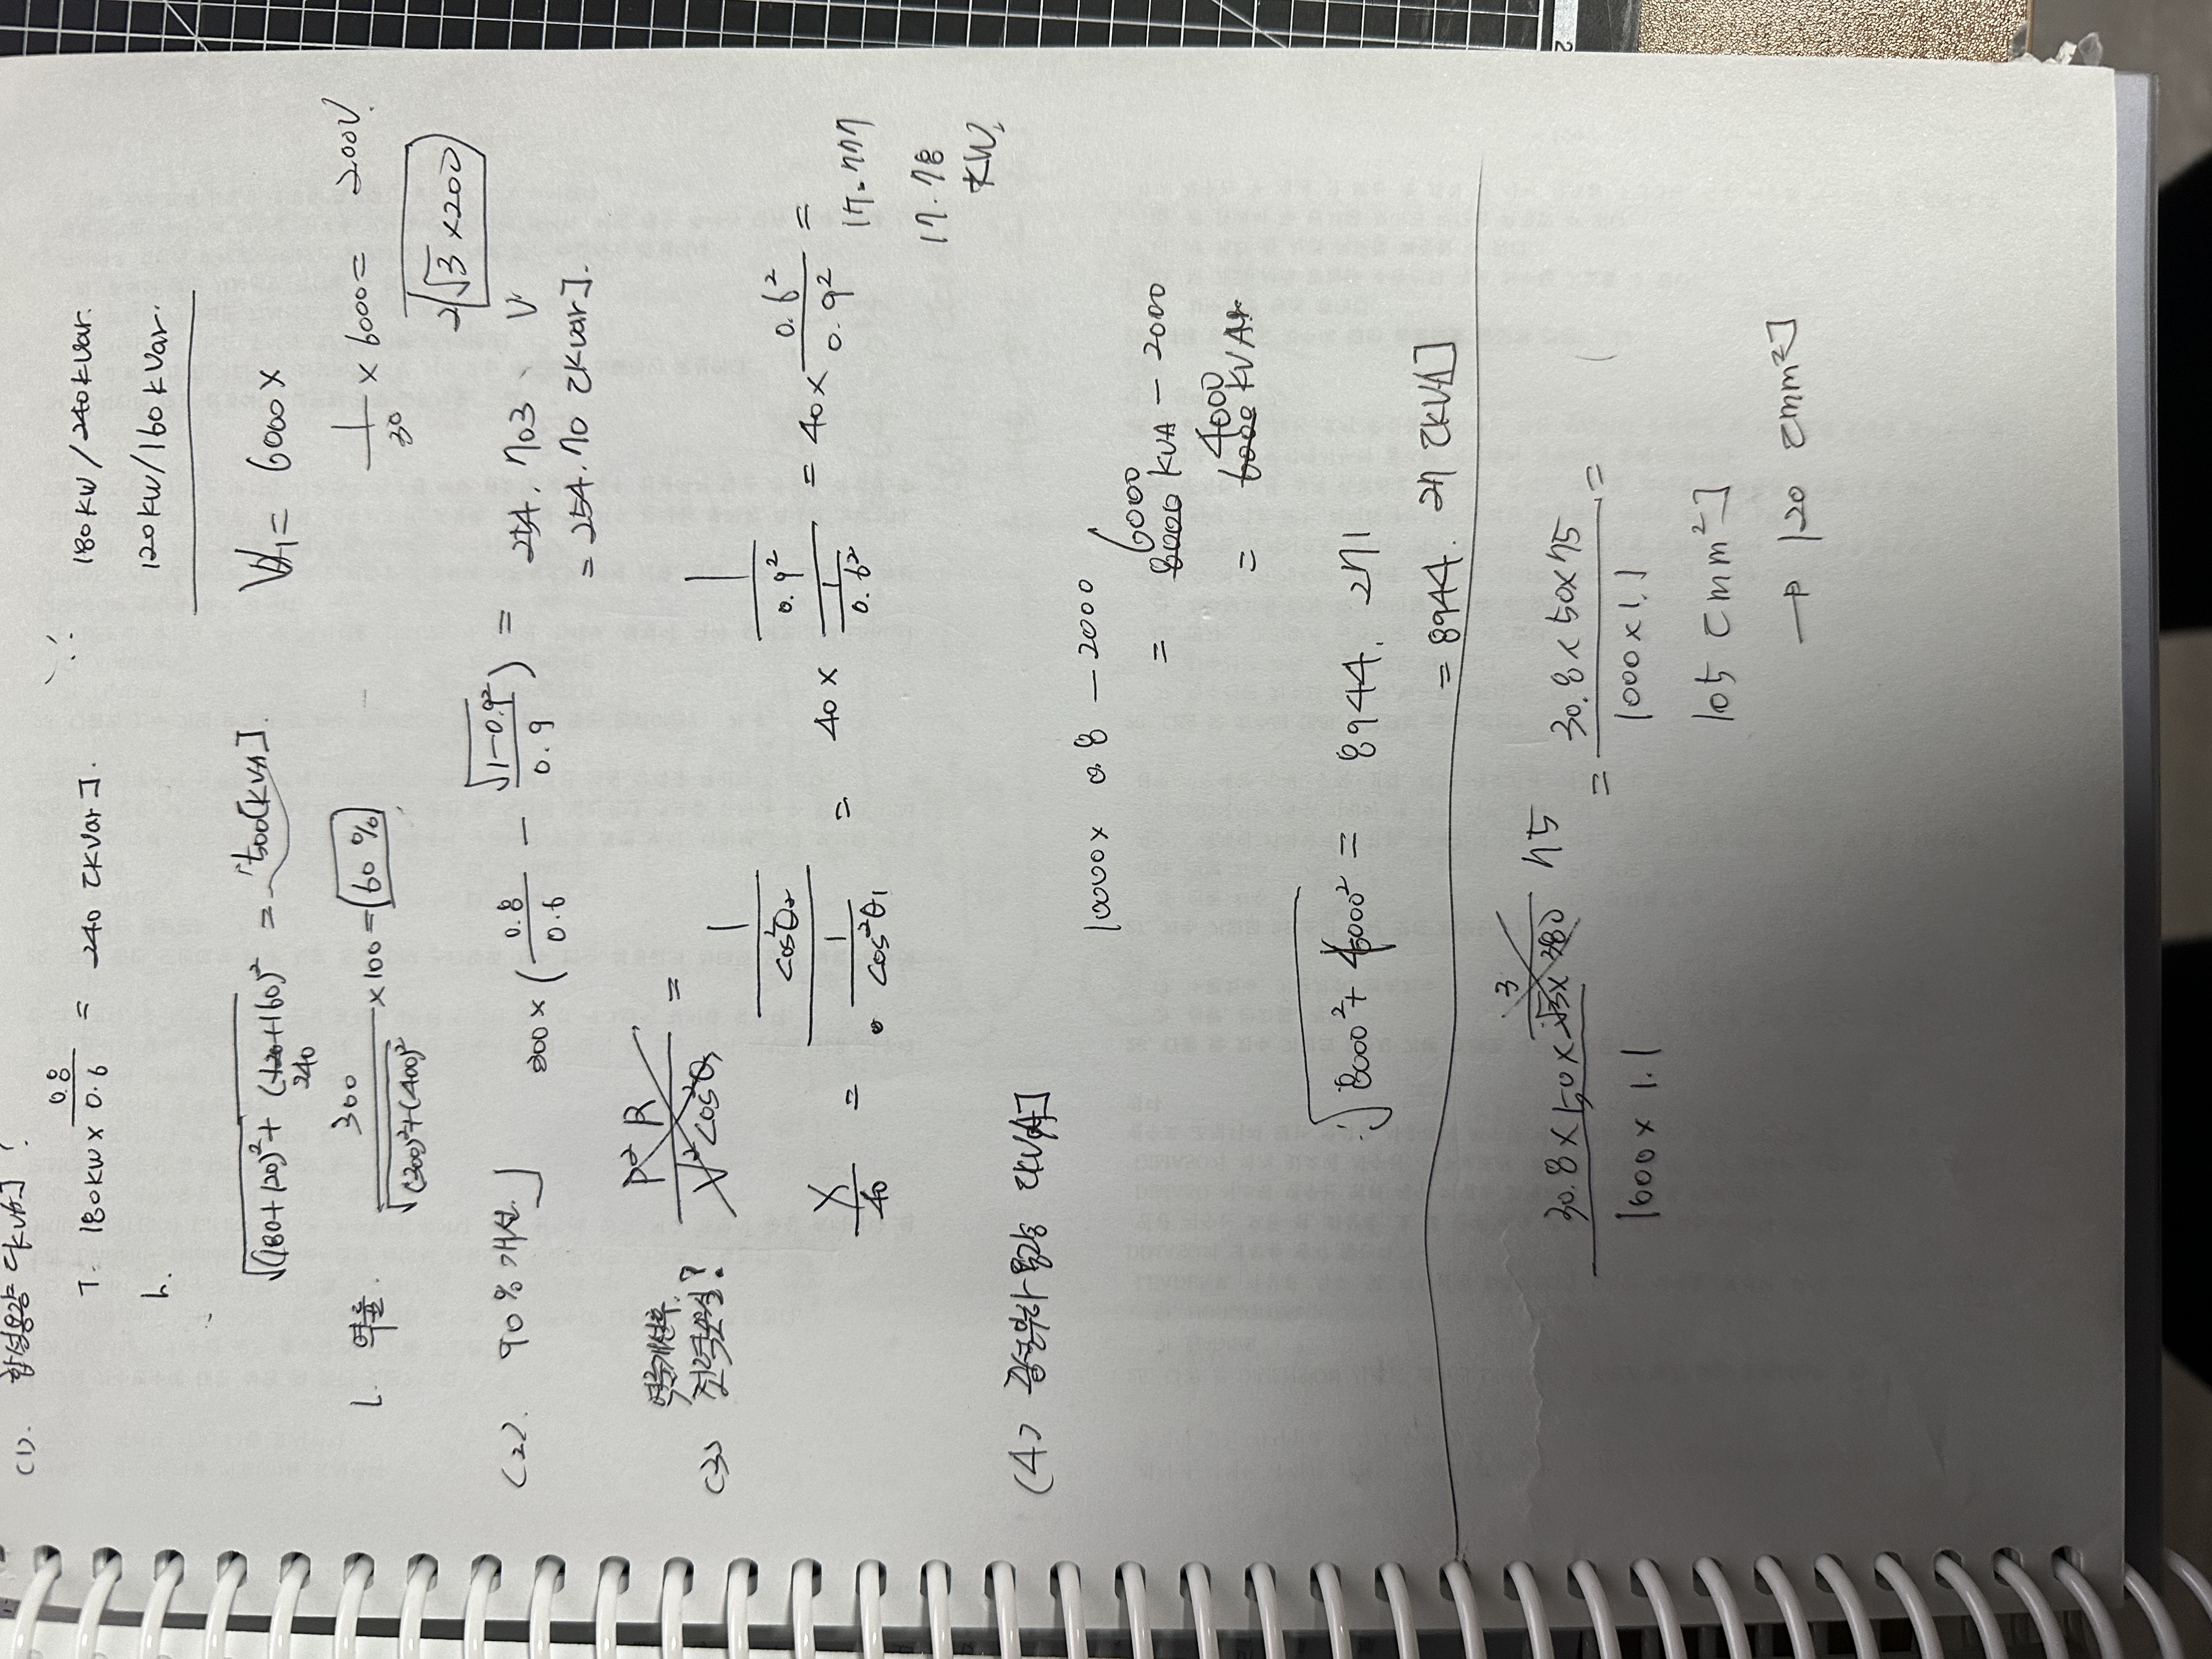 (1). 합성용량 [kVA]?
T. 180kW × 0.8/0.6 = 240 [kVar].
∴ 180kW/240kVar.
120kW/160kVar.
√(180+120)²+(120+160)² = 500[kVA].
240
V1= 6000 ×
1/30 × 6000 = 200V.
2(√3×200)
V
L. 역률. 300/√(300)²+(400)² ×100 = 60%
(2). 90% 개선.
300×(0.8/0.6 - √1-0.9²/0.9) = 254.703
= 254.70 [kvar].
(3) 역률개선후 전력손실?
P²R/V²cos²θ, =
X/40 = 1/cos²θ₂ / 1/cos²θ1 = 40× 1/0.9² / 1/0.6² = 40× 0.6²/0.9² =
17.777
17.78
kW.
(4) 감당부하 용량 [kVA]
10000× 0.8 - 2000
= 8000 6000 kVA - 2000
= 6000 4000 kVAr
∴ √8000²+4000² = 8944.271
= 8944.27[kVA]
30.8×50×√3×380 75 / 1000×1.1
3
= 30.8×50×75 / 1000×1.1 =
105 [mm²]
→ 120 [mm²]